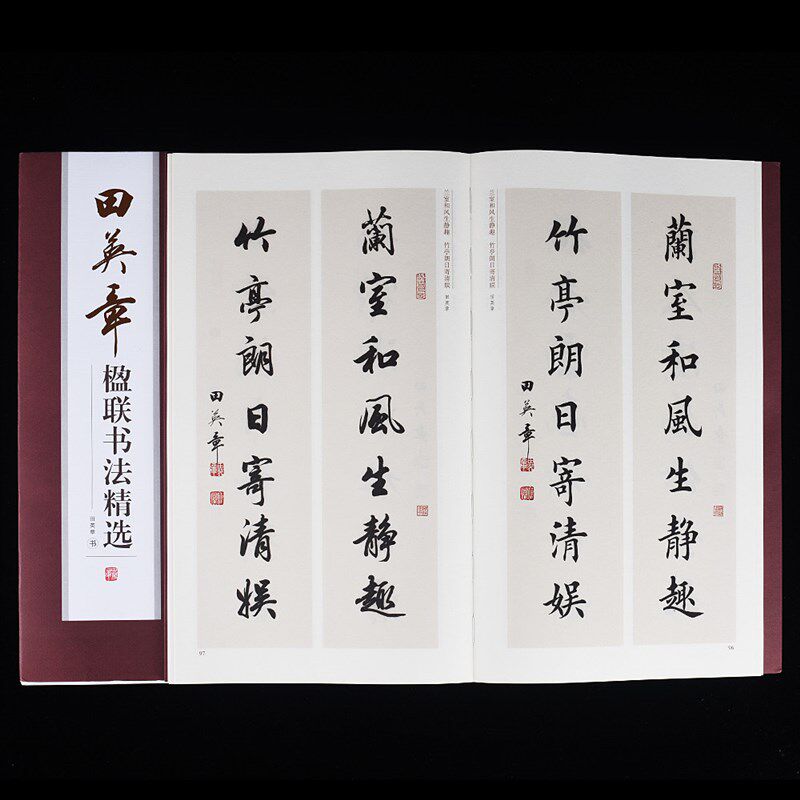 田英章
楹联书法精选
田英章 书
蘭室和風生静趣
竹亭朗日寄清娱
田英章
兰室和风生静趣 竹亭朗日寄清娱
田英章
96
蘭室和風生静趣
竹亭朗日寄清娱
田英章
兰室和风生静趣 竹亭朗日寄清娱
田英章
97